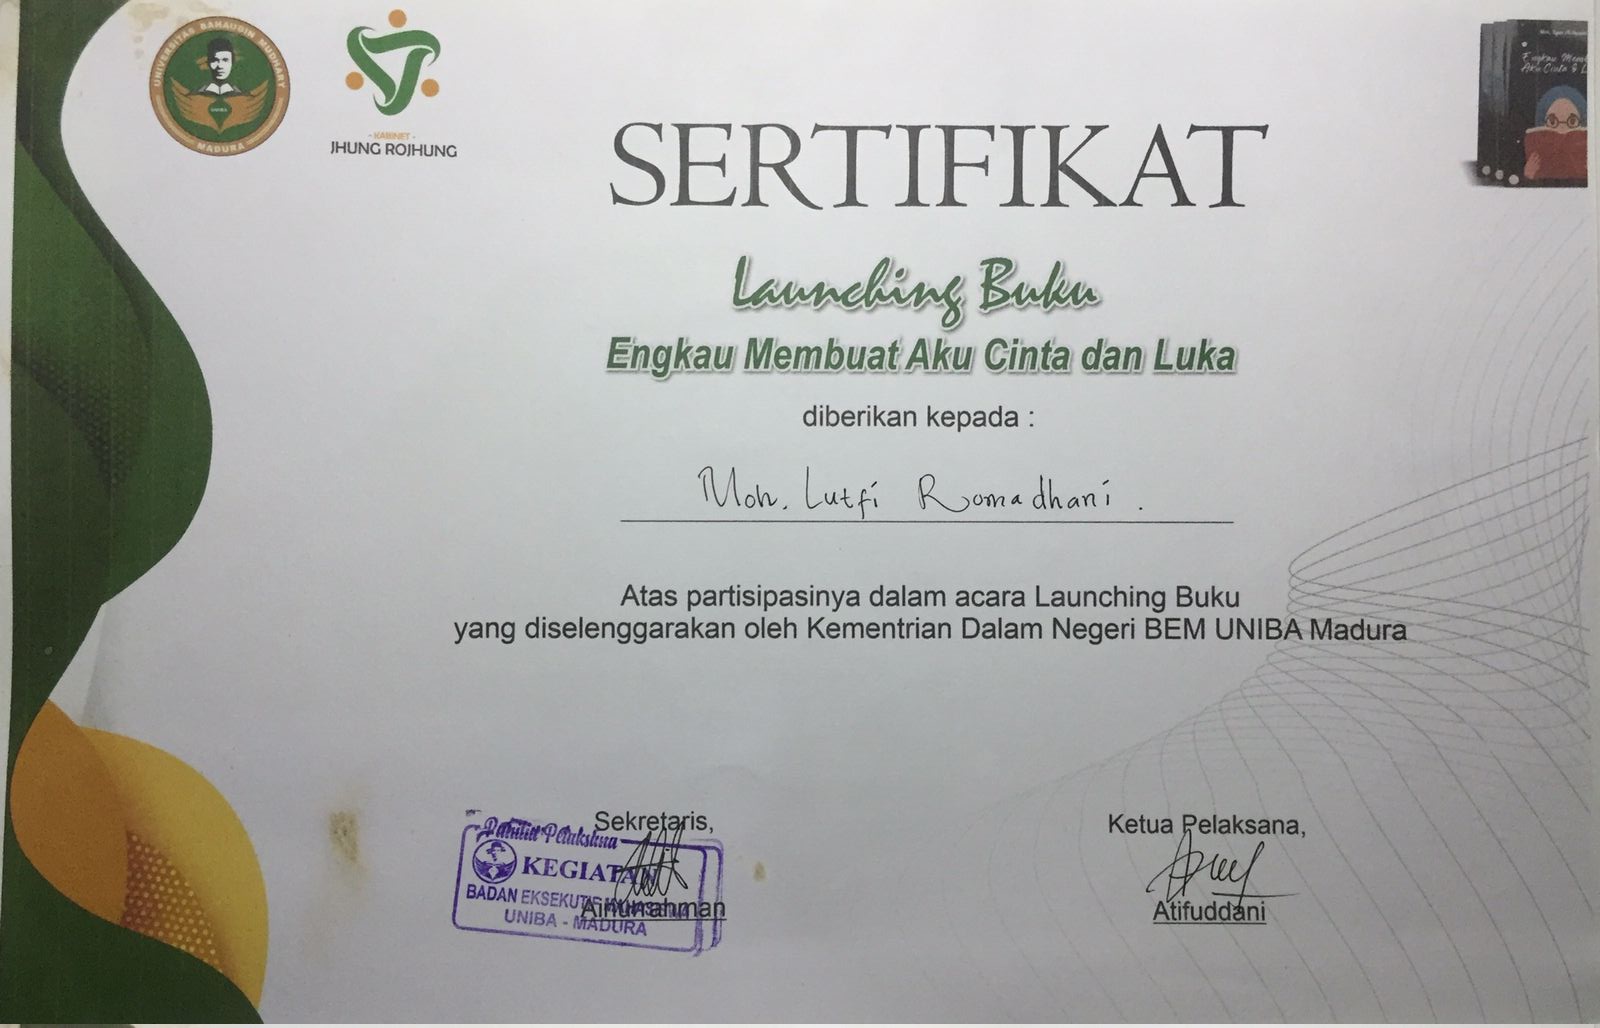 UNIVERSITAS BAHAUDIN MUDHARY
UNIBA
MADURA
- KABINET -
JHUNG ROJHUNG
Engkau Mem
Aku Cinta & L
SERTIFIKAT
Launching Buku
Engkau Membuat Aku Cinta dan Luka
diberikan kepada :
Moh. Lutfi Romadhani.
Atas partisipasinya dalam acara Launching Buku
yang diselenggarakan oleh Kementrian Dalam Negeri BEM UNIBA Madura
Sekretaris,
Panitia Pelaksana
KEGIATAN
BADAN EKSEKUTIF
UNIBA - MADURA
Ainurrahman
Ketua Pelaksana,
Atifuddani